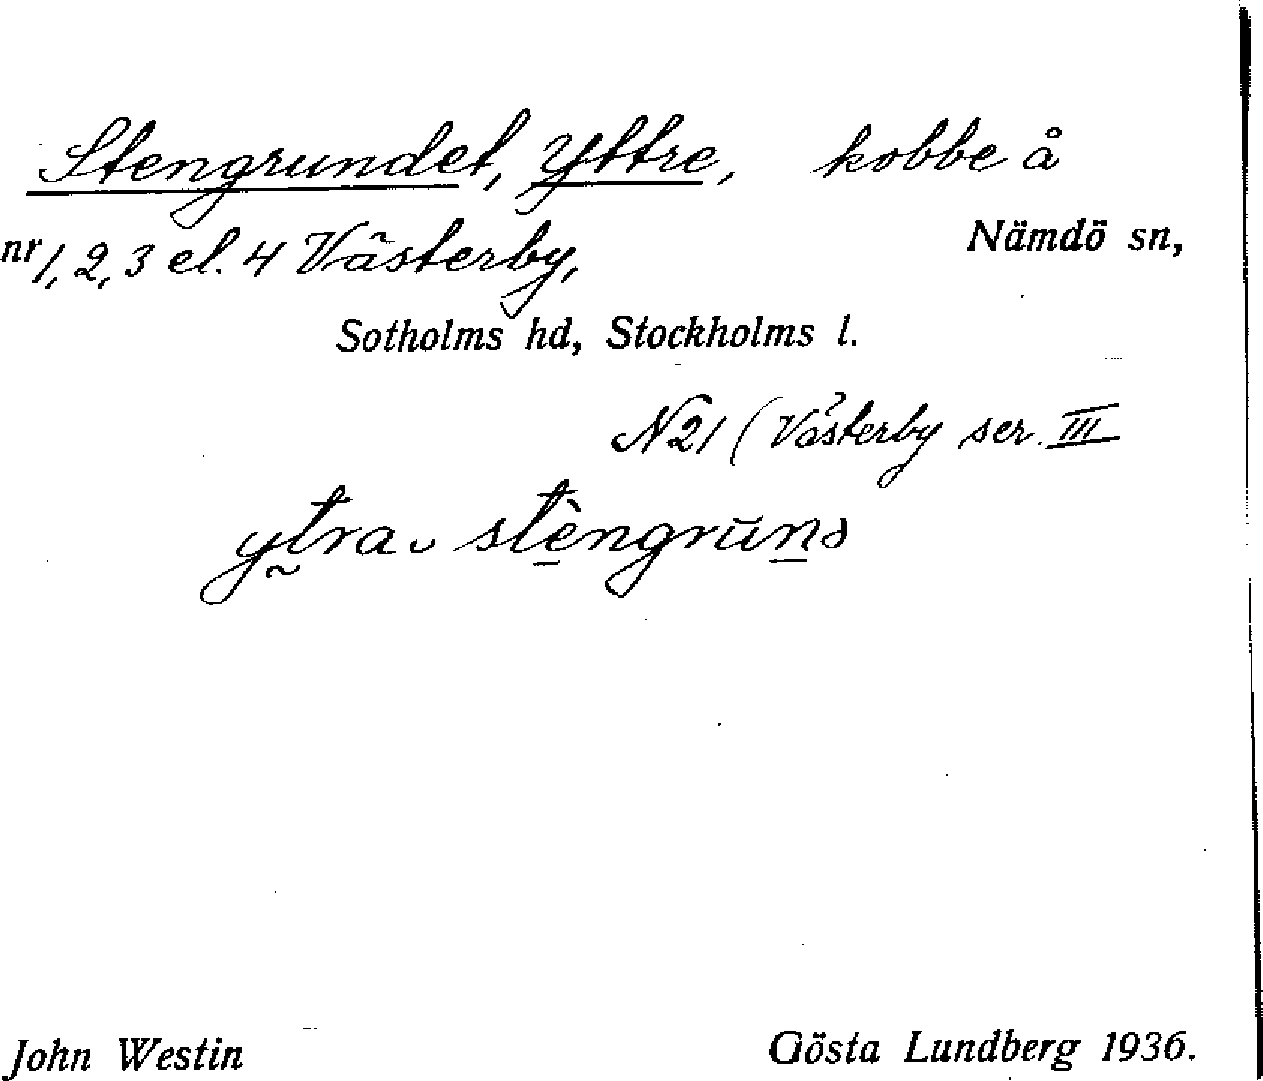 Stengrundet, Yttre, kobbe å
nr 1, 2, 3 el. 4 Västerby, Nämdö sn,
Sotholms hd, Stockholms l.
N 21 (Västerby ser. III
ytra stèngrūnə
John Westin Gösta Lundberg 1936.